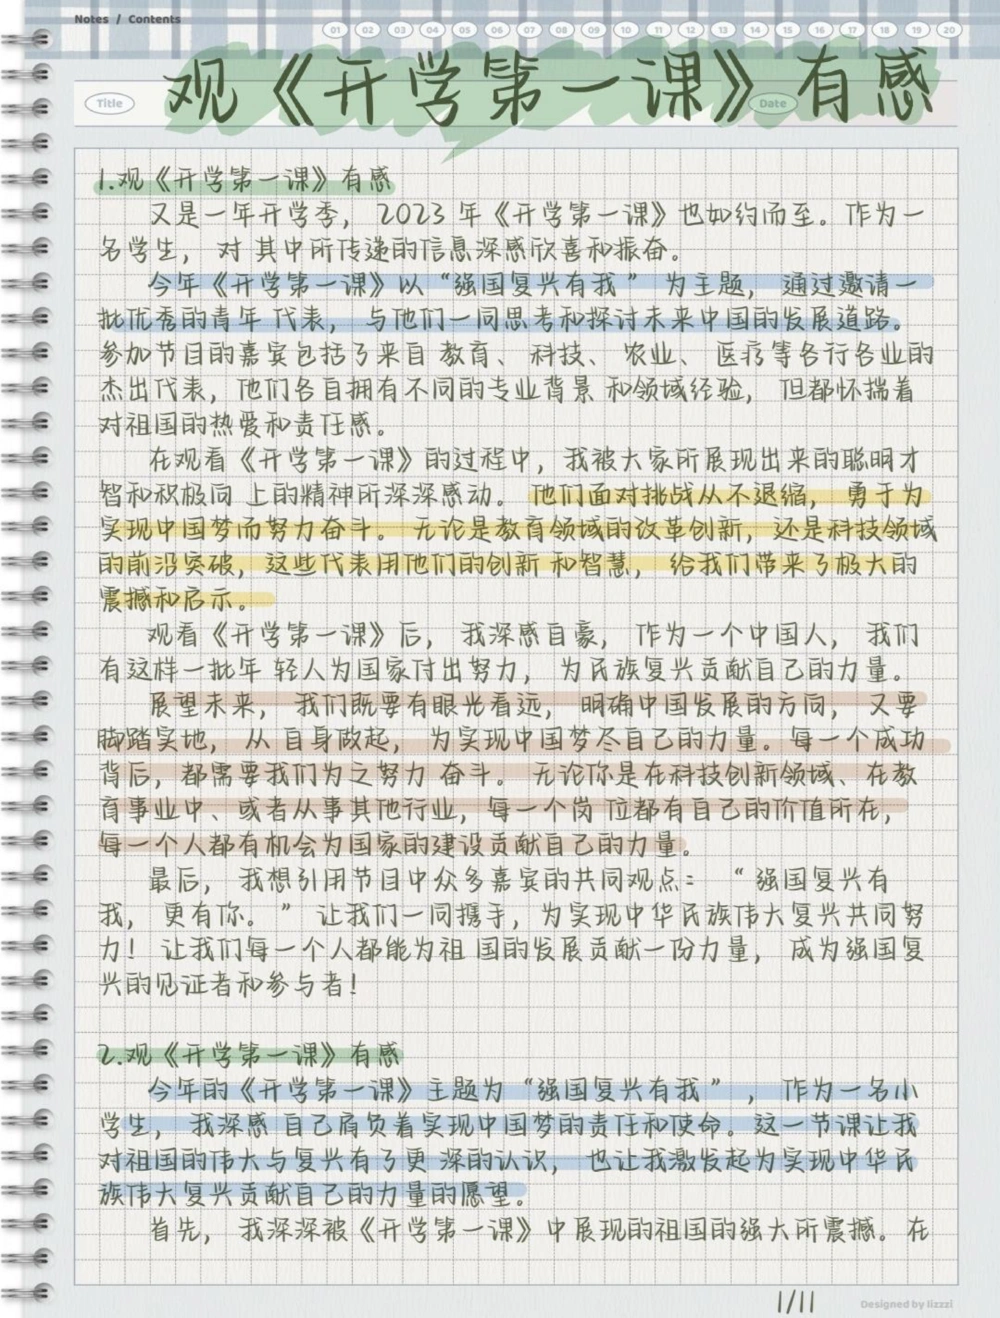 Notes / Contents
01 02 03 04 05 06 07 08 09 10 11 12 13 14 15 16 17 18 19 20
Title
观《开学第一课》有感
Date
1.观《开学第一课》有感
又是一年开学季， 2023 年《开学第一课》也如约而至。作为一
名学生，对 其中所传递的信息深感欣喜和振奋。
今年《开学第一课》以“强国复兴有我 ” 为主题， 通过邀请一
批优秀的青年 代表， 与他们一同思考和探讨未来中国的发展道路。
参加节目的嘉宾包括了来自 教育、 科技、 农业、 医疗等各行各业的
杰出代表，他们各自拥有不同的专业背景 和领域经验， 但都怀揣着
对祖国的热爱和责任感。
在观看《开学第一课》的过程中，我被大家所展现出来的聪明才
智和积极向 上的精神所深深感动。 他们面对挑战从不退缩， 勇于为
实现中国梦而努力奋斗。 无论是教育领域的改革创新，还是科技领域
的前沿突破，这些代表用他们的创新 和智慧， 给我们带来了极大的
震撼和启示。
观看《开学第一课》后， 我深感自豪， 作为一个中国人， 我们
有这样一批年 轻人为国家付出努力， 为民族复兴贡献自己的力量。
展望未来， 我们既要有眼光看远， 明确中国发展的方向， 又要
脚踏实地， 从 自身做起， 为实现中国梦尽自己的力量。每一个成功
背后，都需要我们为之努力 奋斗。 无论你是在科技创新领域、在教
育事业中、或者从事其他行业，每一个岗 位都有自己的价值所在，
每一个人都有机会为国家的建设贡献自己的力量。
最后， 我想引用节目中众多嘉宾的共同观点： “ 强国复兴有
我， 更有你。 ” 让我们一同携手，为实现中华民族伟大复兴共同努
力！ 让我们每一个人都能为祖 国的发展贡献一份力量， 成为强国复
兴的见证者和参与者！
2.观《开学第一课》有感
今年的《开学第一课》主题为“强国复兴有我 ” ， 作为一名小
学生， 我深感 自己肩负着实现中国梦的责任和使命。这一节课让我
对祖国的伟大与复兴有了更 深的认识， 也让我激发起为实现中华民
族伟大复兴贡献自己的力量的愿望。
首先， 我深深被《开学第一课》中展现的祖国的强大所震撼。在
1/11
Designed by lizzzi